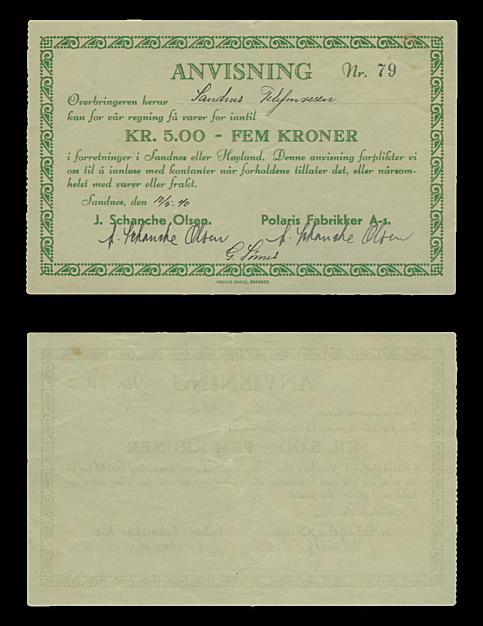 ANVISNING Nr. 79
Overbringeren herav Sandnes Telefonvesen
kan for vår regning få varer for inntil
KR. 5.00 - FEM KRONER
i forretninger i Sandnes eller Høyland. Denne anvisning forplikter vi
oss til å innløse med kontanter når forholdene tillater det, eller når som-
helst med varer eller frakt.
Sandnes, den 14/5-40
J. Schanche Olsen. Polaris Fabrikker A-s.
J. Schanche Olsen J. Schanche Olsen
INGVALD DAHLE, SANDNES